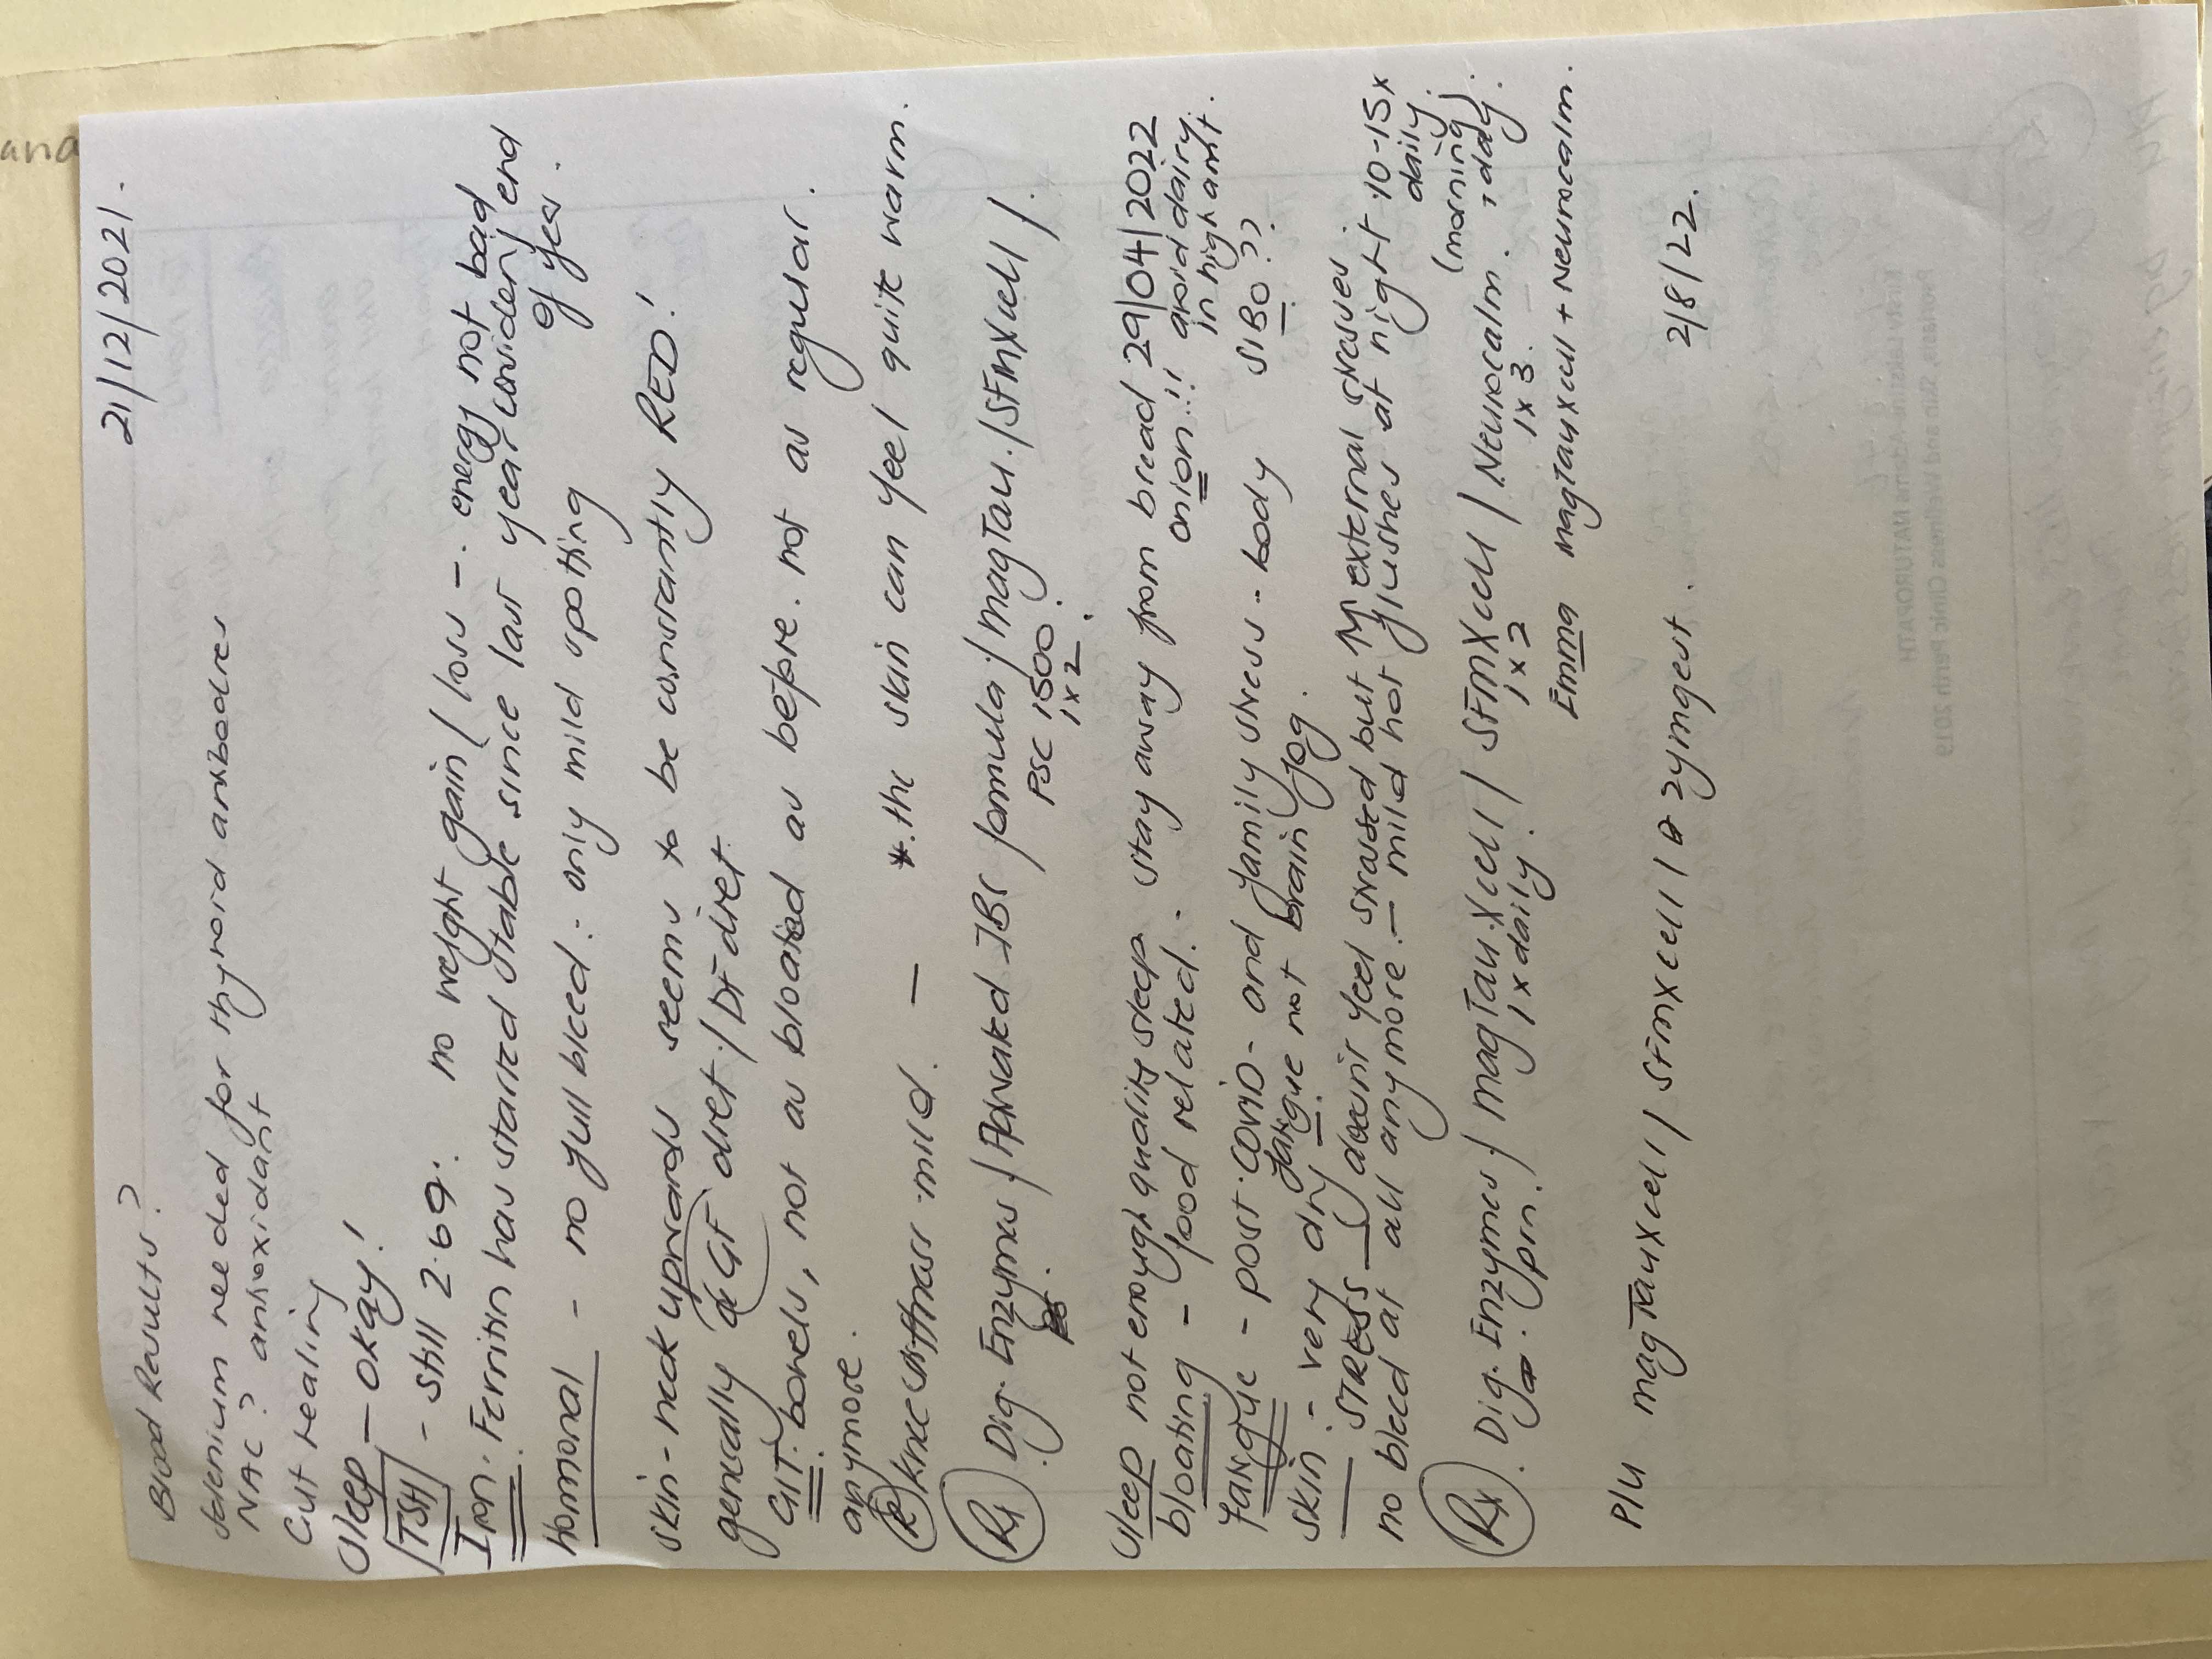 21/12/2021.
Blood Results?
selenium needed for thyroid antibodies
NAC? antioxidant
Gut healing
Sleep - okay!
TSH - still 2.69. no weight gain / loss - energy not bad
Iron. Ferritin has started stable since last year considering end
of year.
hormonal - no full bleed. only mild spotting
skin - neck upwards seems to be constantly RED!
generally GF diet / DF diet
GIT. bowels, not as bloated as before. not as regular.
anymore.
(R) knee stiffness mild. - * the skin can feel quite warm.
Rx Dig. Enzymes / Activated IBS formula / magTau. / SFmXcell /.
PSC 1500.
1x2.
29/04/2022
Sleep not enough quality sleep. stay away from bread
onion!! avoid dairy
in high amt.
bloating - food related. -
fatigue - post-COVID - and family stress - body SIBO??
fatigue not brain fog.
skin - very dry
STRESS doesnt feel stressed but external stresses.
no bleed at all anymore. - mild hot flushes at night. 10-15x
daily.
(morning)
Rx Dig. Enzymes / magTauXcell / SFmXcell / Neurocalm.
prn. 1x daily. 1x2 1x3.
Emma magTauxcell + Neurocalm.
P/U magTauXcell / SFmXcell / zymgest. 2/8/22.
Kirsty
NATUROPATH
Skin and Wellness Clinic Perth 2019
ana